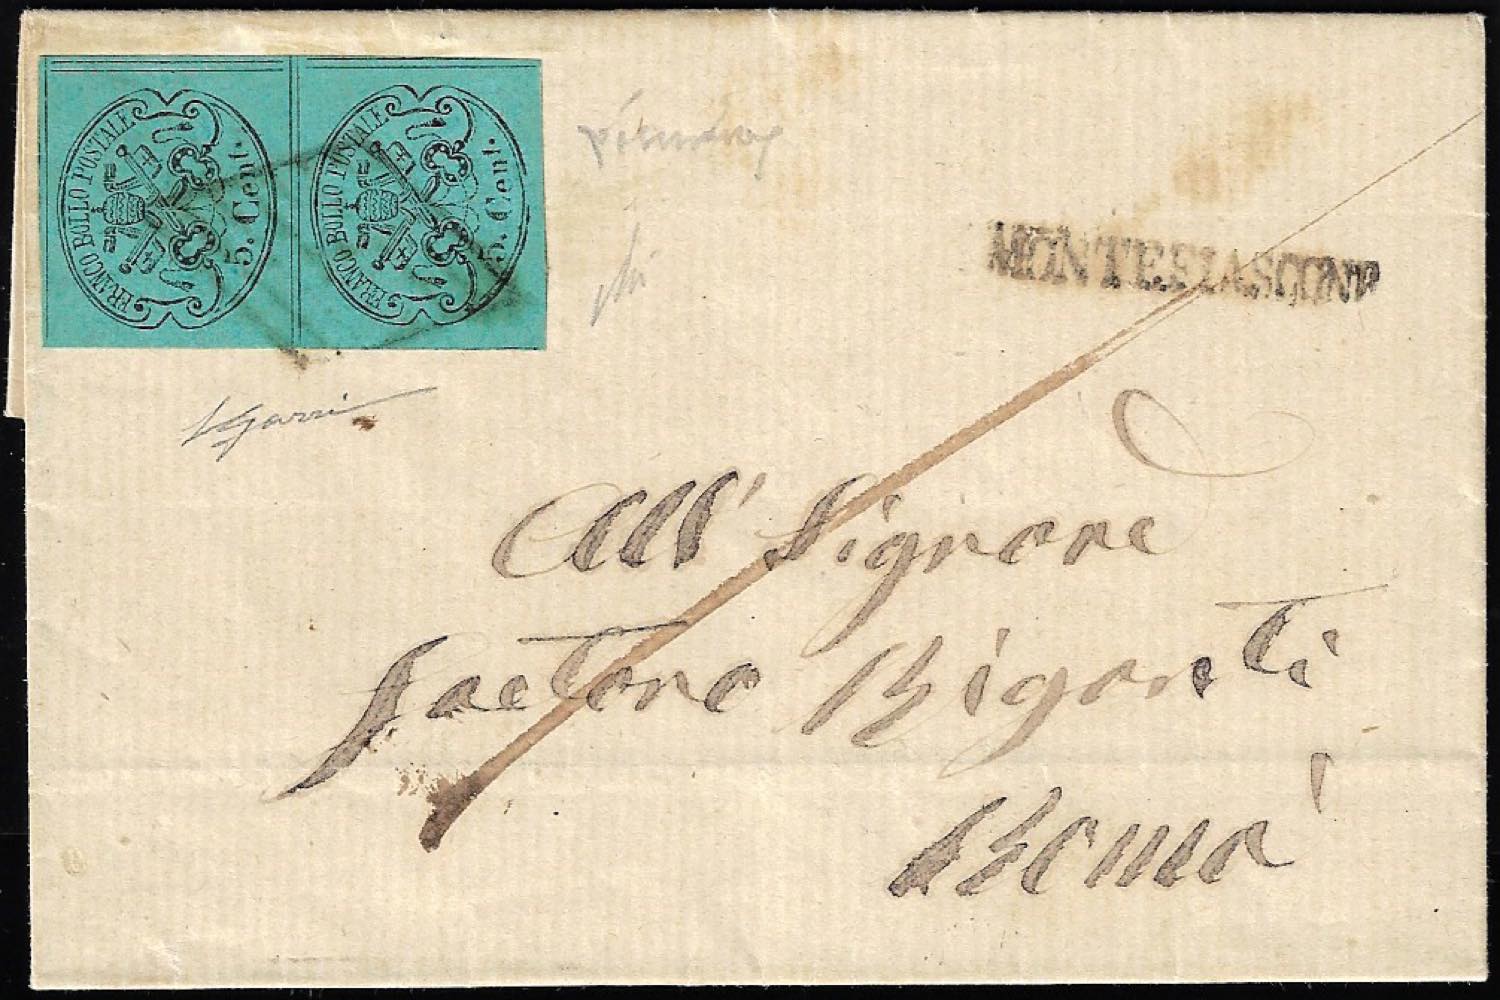 FRANCO BOLLO POSTALE
5. Cent.
FRANCO BOLLO POSTALE
5. Cent.
MONTEFIASCONE
All' Signore
Fattore Briganti
Roma